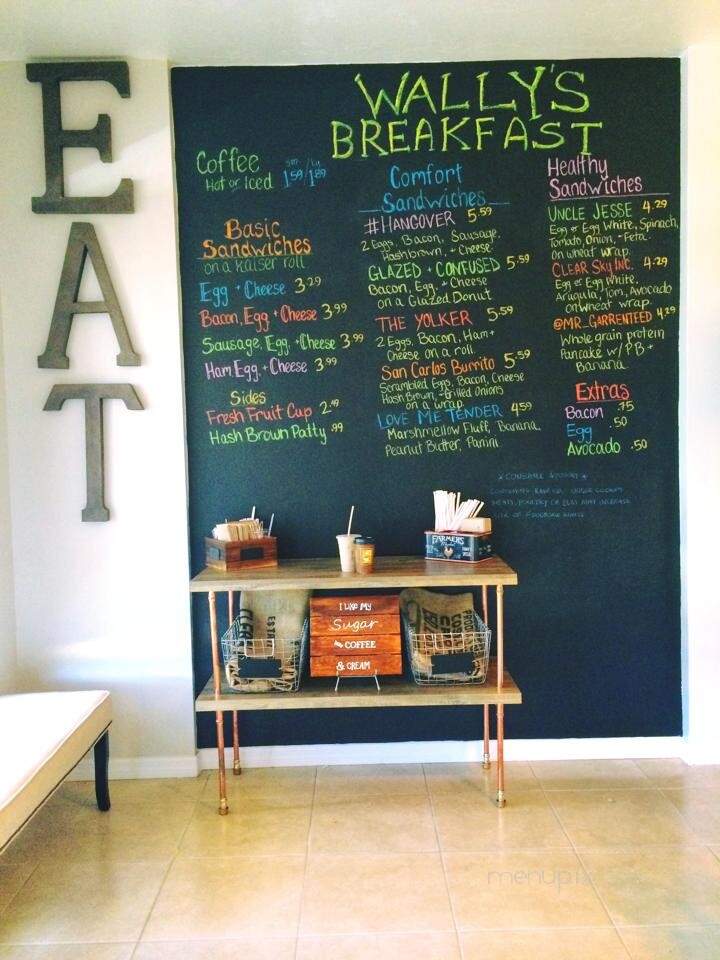 EAT
WALLY'S
BREAKFAST
Coffee sm lg
Hot or Iced 1.59/1.89
Basic
Sandwiches
on a Kaiser roll
Egg + Cheese 3.29
Bacon, Egg + Cheese 3.99
Sausage, Egg, + Cheese 3.99
Ham Egg, + Cheese 3.99
Sides
Fresh Fruit Cup 2.49
Hash Brown Patty .99
Comfort
Sandwiches
#HANGOVER 5.59
2 Eggs, Bacon, Sausage,
Hashbrown, + Cheese
GLAZED + CONFUSED 5.59
Bacon, Egg, + Cheese
on a Glazed Donut
THE YOLKER 5.59
2 Eggs, Bacon, Ham +
Cheese on a roll
San Carlos Burrito 5.59
Scrambled Eggs, Bacon, Cheese
Hash Brown, + Grilled Onions
on a wrap
LOVE ME TENDER 4.59
Marshmellow Fluff, Banana,
Peanut Butter, Panini
Healthy
Sandwiches
UNCLE JESSE 4.29
Egg or Egg White, Spinach,
Tomato, Onion, + Feta
on wheat wrap
CLEAR SKY INC. 4.29
Egg or Egg White,
Arugula, Tom, Avocado
on wheat wrap
@MR_GARRENTEED 4.29
Whole grain protein
Pancake w/ PB +
Banana
Extras
Bacon .75
Egg .50
Avocado .50
CONSUMER ADVISORY
CONSUMING RAW OR UNDER COOKED
MEATS, POULTRY OR EGGS MAY INCREASE
RISK OF FOODBORNE ILLNESS
FARMER'S
I LIKE MY
Sugar
WITH COFFEE
& CREAM
menupix